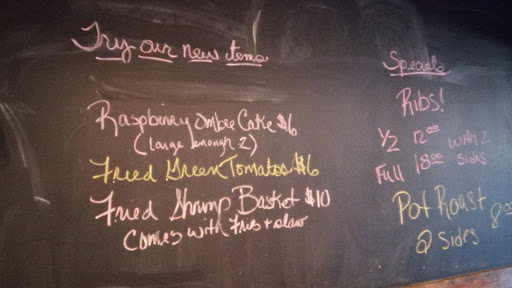 Try our new items
Raspberry Ombre Cake $6
(large enough 2)
Fried Green Tomatoes $6
Fried Shrimp Basket $10
Comes with Fries + slaw
Specials
Ribs!
1/2 12.00 with 2
Full 18.00 sides
Pot Roast 8.00
2 Sides